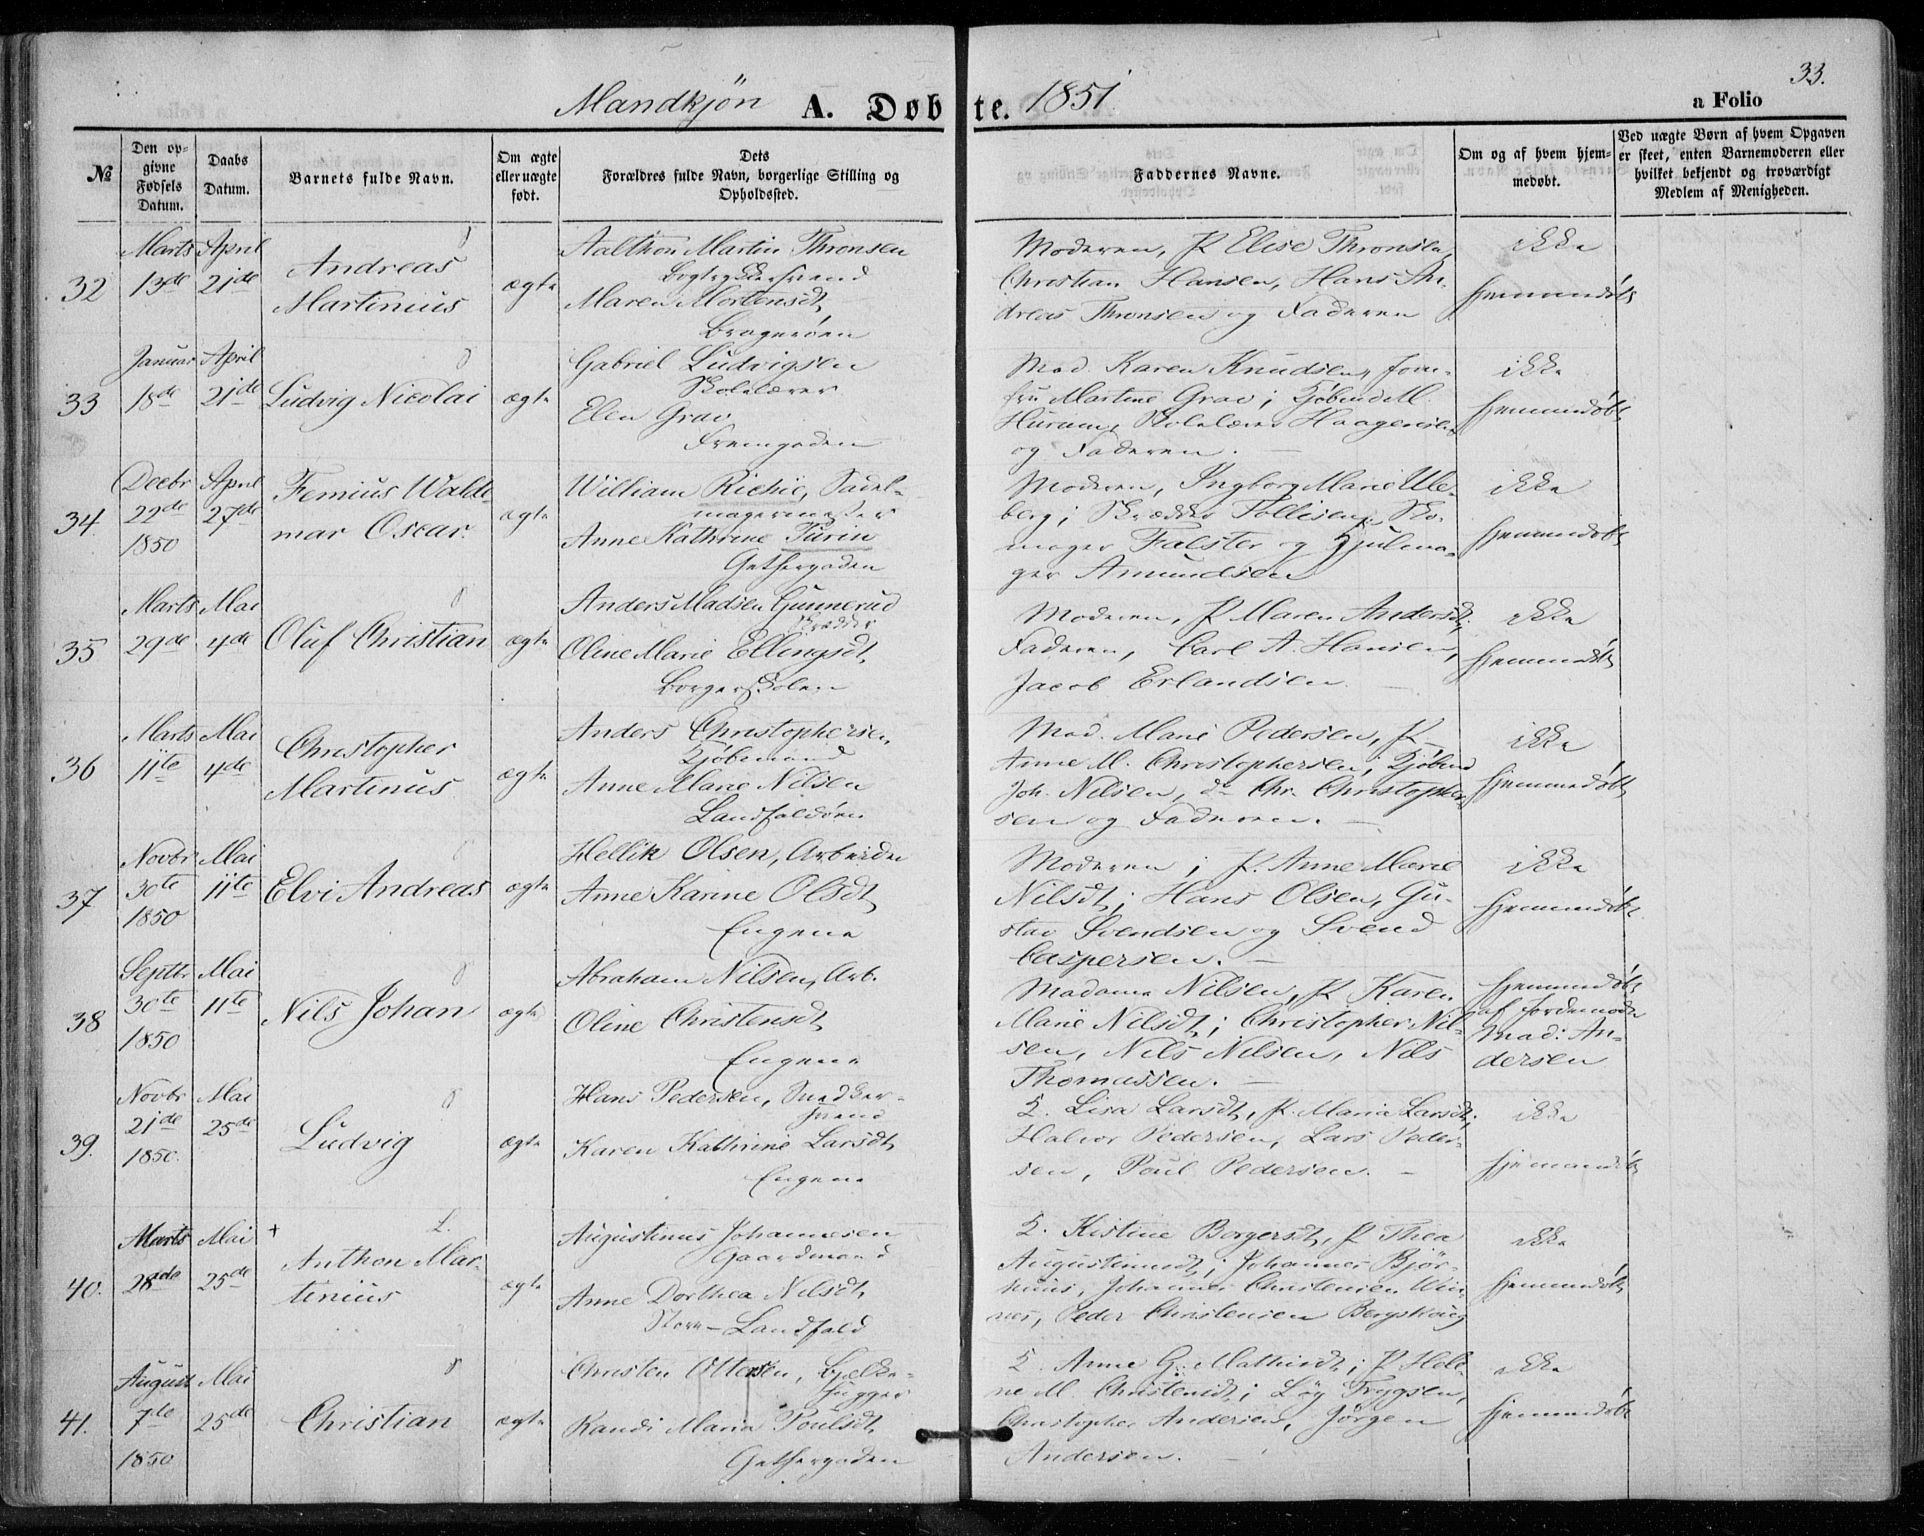 33.
Mandkjön A. Døbte. 1851.
a Folio
№
Den opgivne Fødsels Datum.
Daabs Datum.
Barnets fulde Navn.
Om ægte eller uægte født.
Dets Forældres fulde Navn, borgerlige Stilling og Opholdssted.
Faddernes Navne.
Om og af hvem hjemmedøbt.
Ved uægte Børn af hvem Opgaven er skeet, enten Barnemoderen eller hvilket bekjendt og troværdigt Medlem af Menigheden.
32
Marts 13de
April 21de
Andreas
Martinius
ægte
Aalthon Martin Thronsen
Bogtrykkersvend
Maren Mortensdt,
Bragerøen
Moderen, P Elise Thronsen,
Christian Hansen, Hans An-
dreas Thronsen og Faderen
ikke
hjemmedöbt
33
Januar 18de
April 21de
Ludvig Nicolai
ægte
Gabriel Ludvigsen
Skolelærer
Elen Grav
Fremgaden
Mad. Karen Knudsen, Jom-
fru Martine Grav; Kjöbmd M.
Hurum, Skolelærer Haagensen
og Faderen.
ikke
hjemmedöbt
34.
Decbr 22de 1850
April 27de
Femius Walde-
mar Oscar.
ægte
William Richie, Sadel-
magermester
Anne Kathrine Turin
Gethergaden
Moderen, Ingborg Marie Ule-
berg; Skrædder Tollisen, Sko-
mager Falster og Hjulma-
ger Amundsen
ikke
hjemmedöbt
35
Marts 29de
Mai 4de
Oluf Christian
ægte
Anders Madsen Gunnerud
Skrædder
Oline Marie Ellingsdt,
Borgerskolen
Moderen, P Maren Andersdt,
Faderen, Carl A. Hansen,
Jacob Erlandsen
ikke
hjemmedöbt
36
Marts 11te
Mai 4de
Christopher
Martinus
ægte
Anders Christophersen,
Kjöbmand
Anne Marie Nilsen
Landfaldöen
Mad. Marie Pedersen, P
Anne M. Christophersen; Kjöbmd
Joh. Nilsen, do Chr. Christopher-
sen og Faderen.
ikke
hjemmedöbt
37
Novbr 30te 1850
Mai 11te
Elvi Andreas
ægte
Hellik Olsen, Arbeider
Anne Karine Olsdt,
Engene
Moderen; P. Anne Marie
Nilsdt; Hans Olsen, Gu-
stav Svendsen og Svend
Caspersen.
ikke
hjemmedöbt
38
Septbr 30te 1850
Mai 11te
Nils Johan
ægte
Abraham Nilsen, Arb.
Oline Christensdt,
Engene
Madame Nilsen, P Karen
Marie Nilsdt; Christopher Nil-
sen, Nils Nilsen, Nils
Thomassen.
hjemmedöbt
af Jordemoder
Mad: An-
dersen
39.
Novbr 21de 1850.
Mai 25de
Ludvig
ægte
Hans Pedersen, Snedker-
svend
Karen Kathrine Larsdt,
Engene
Q. Lisa Larsdt, P. Maria Larsdt;
Halvor Pedersen, Lars Peder-
sen, Poul Pedersen.
ikke
hjemmedöbt
40.
Marts 28de
Mai 25de
+
L.
Anthon Mar-
tinius
ægte
Augustinus Johannesen
Gaardmand
Anne Dorthea Nilsdt,
Store-Landfald
Q. Kistine Borgersdt, P Thea
Augustinusdt; Johannes Björ-
Johannes Christensen
Peder Christensen
ikke
hjemmedöbt
41.
August 7de 1850
Mai 25de
Christian
ægte
Christen Ottersen, Bjelke-
hugger
Randi Maria Poulsdt,
Gethergaden
Q. Anne G. Mathisdt; P Hele-
ne M. Christensdt; Trygsen,
Christopher Andersen, Jörgen
Andersen.
ikke
hjemmedöbt